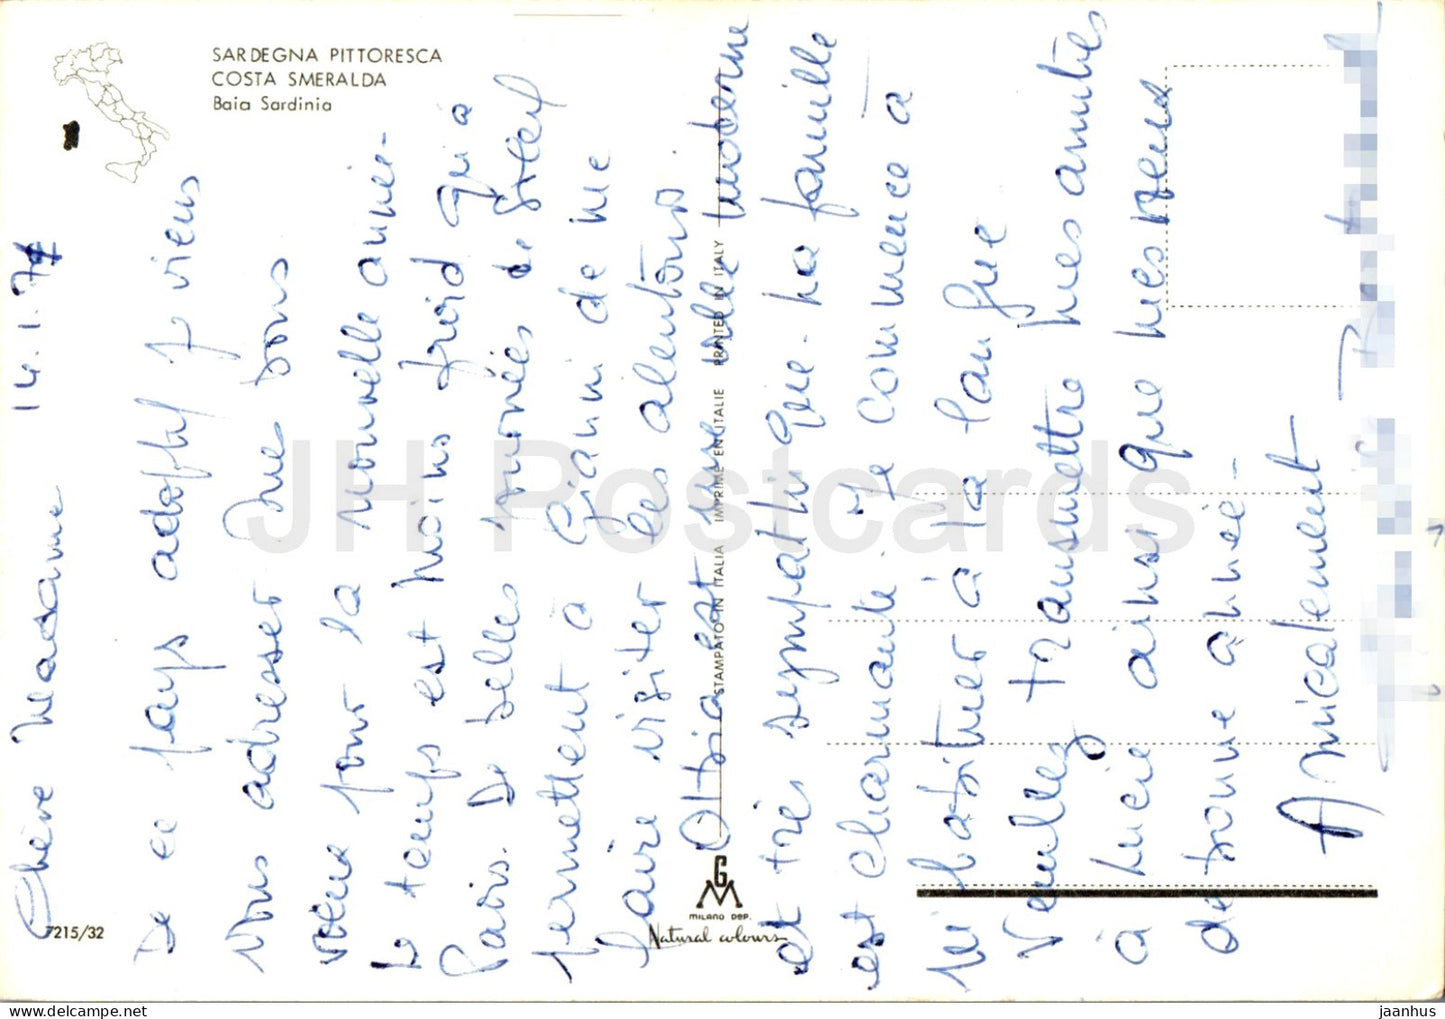 SARDEGNA PITTORESCA
COSTA SMERALDA
Baia Sardinia
14.1.74
Chère Madame
De ce pays adoptif je viens
vous adresser que bons
vœux pour la nouvelle année-
le temps est moins froid qu'à
Paris. De belles journées de soleil
permettent à Gianni de me
faire visiter les alentours
Olbia est une ville moderne
et très sympathique. Ma famille
est charmante. Je commence à
m'habituer à la langue
Veuillez transmettre mes amitiés
à Lucie ainsi que mes vœux
de bonne année-
Amicalement
STAMPATO IN ITALIA IMPRIME EN ITALIE PRINTED IN ITALY
GM
MILANO DEP.
Natural colours
7215/32
JH Postcards
jaanhus